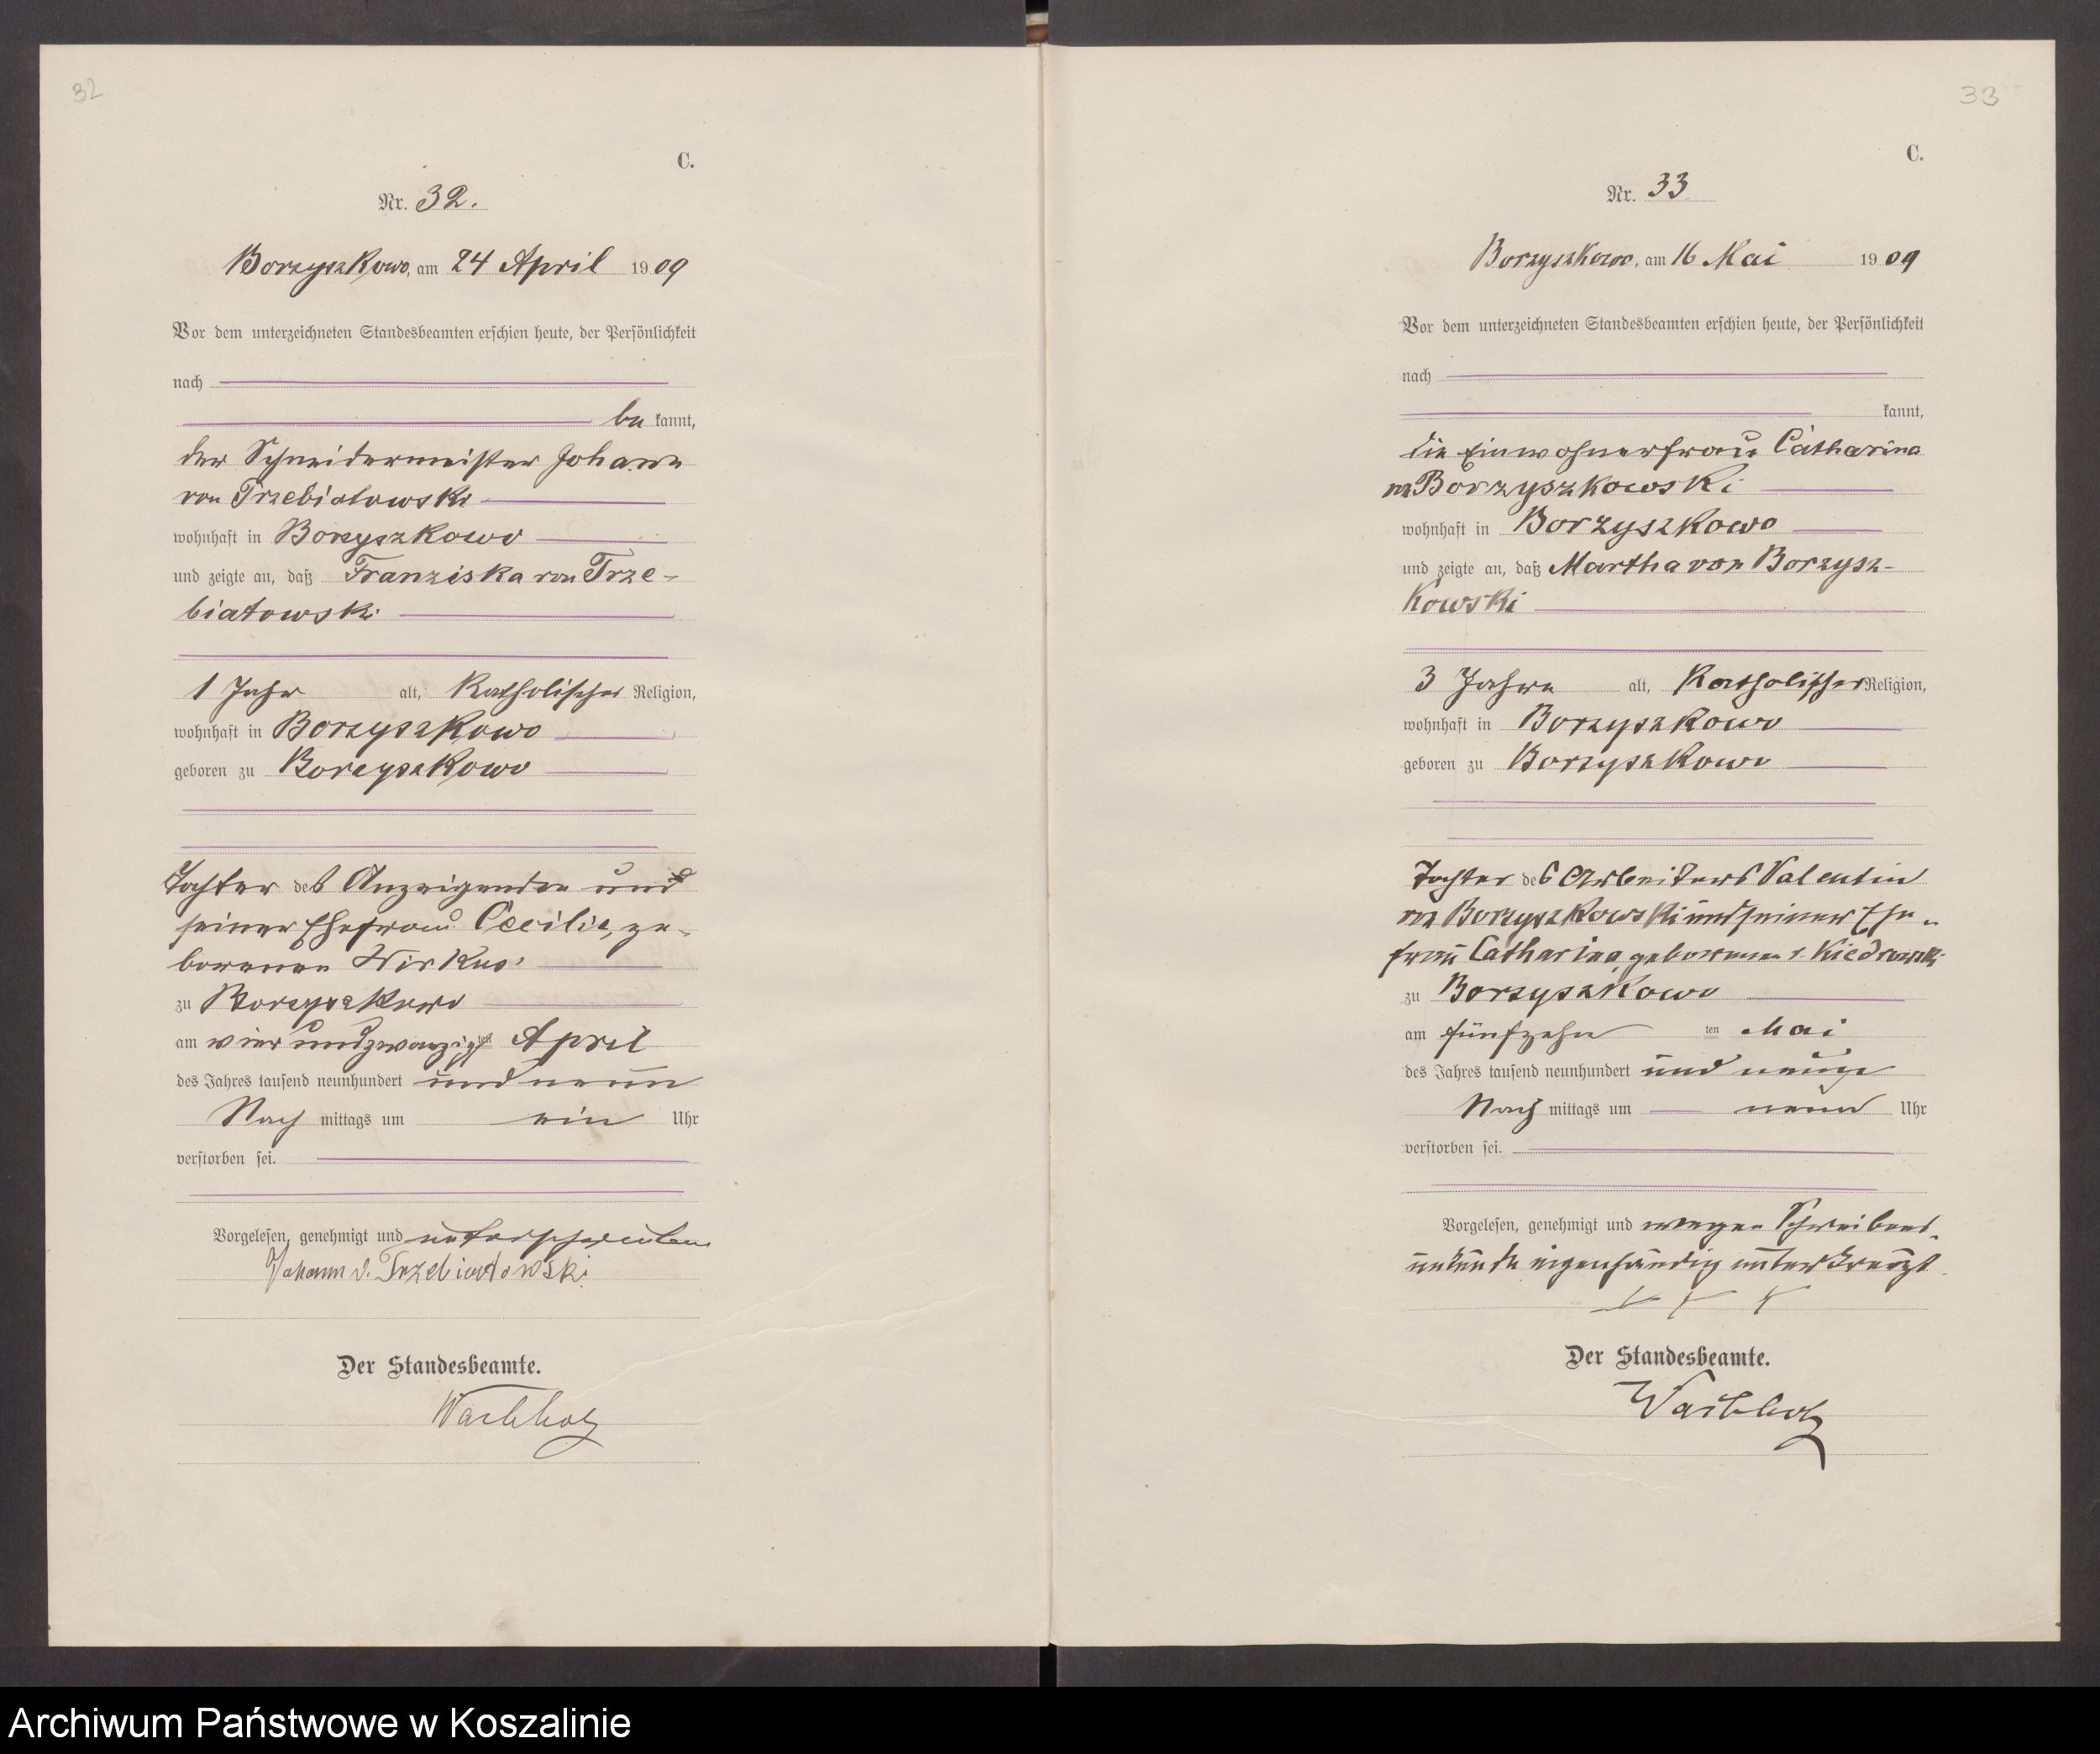 32
C.
Nr. 32.
Borzyszkowo, am 24 April 1909
Vor dem unterzeichneten Standesbeamten erschien heute, der Persönlichkeit
nach
be kannt,
der Schneidermeister Johann
von Trzebiatowski
wohnhaft in Borzyszkowo
und zeigte an, daß Franziska von Trze-
biatowski
1 Jahr alt, Katholischer Religion,
wohnhaft in Borzyszkowo
geboren zu Borzyszkowo
Tochter des Anzeigenden und
seiner Ehefrau Cecilie, ge-
borenen Wirkus
zu Borzyszkowo
am vier und zwanzigsten April
des Jahres tausend neunhundert und neun
Nach mittags um ein Uhr
verstorben sei.
Vorgelesen, genehmigt und unterschrieben
Johann v. Trzebiatowski
Der Standesbeamte.
Wachholz
33
C.
Nr. 33
Borzyszkowo, am 16 Mai 1909
Vor dem unterzeichneten Standesbeamten erschien heute, der Persönlichkeit
nach
kannt,
die Einwohnerfrau Catharina
von Borzyszkowski
wohnhaft in Borzyszkowo
und zeigte an, daß Martha von Borzysz-
kowski
3 Jahre alt, Katholischer Religion,
wohnhaft in Borzyszkowo
geboren zu Borzyszkowo
Tochter des Arbeiters Valentin
von Borzyszkowski und seiner Ehe-
frau Catharina, geborenen v. Kiedrowski
zu Borzyszkowo
am fünfzehn ten Mai
des Jahres tausend neunhundert und neun
Nach mittags um neun Uhr
verstorben sei.
Vorgelesen, genehmigt und wegen Schreibens-
unkunde eigenhändig unterkreuzt
+ + +
Der Standesbeamte.
Wachholz
Archiwum Państwowe w Koszalinie